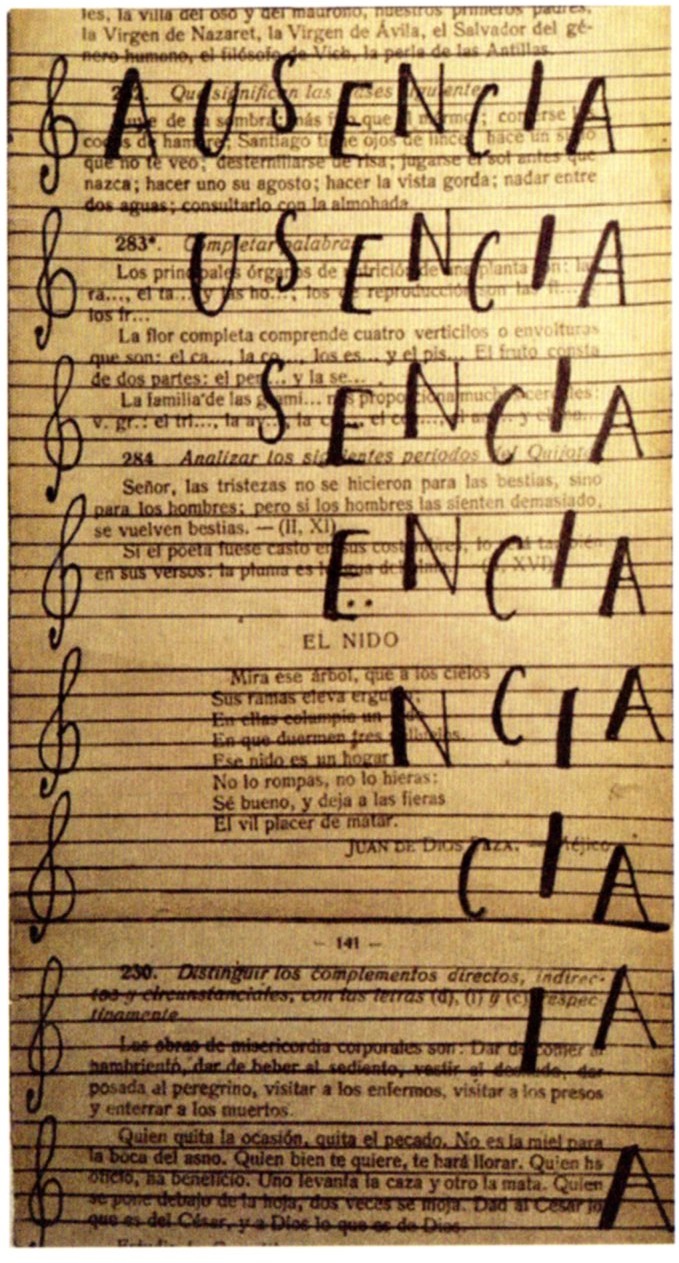 les, la villa del oso y del madroño, nuestros primeros padres,
la Virgen de Nazaret, la Virgen de Ávila, el Salvador del gé-
nero humano, el filósofo de Vich, la perla de las Antillas.
AUSENCIA
282. Que significan las frases siguientes
de sombra; más que el mármol; comerse los
codos de hambre; Santiago tiene ojos de lince; hace un siglo
que no te veo; desternillarse de risa; jugarse el sol antes que
nazca; hacer uno su agosto; hacer la vista gorda; nadar entre
dos aguas; consultarlo con la almohada
USENCIA
283*. Completar palabras
Los principales órganos de nutrición de una planta son: la
ra..., el ta... y las ho..., los de reproducción son las fl...
los fr...
La flor completa comprende cuatro verticilos o envolturas
que son: el ca..., la co..., los es... y el pis... El fruto consta
de dos partes: el per... y la se...
SENCIA
La familia de las grami... nos proporciona muchos cereales:
v. gr.: el tri..., la av..., la ce..., el ce...,
284 Analizar los siguientes períodos del Quijote
Señor, las tristezas no se hicieron para las bestias, sino
para los hombres; pero si los hombres las sienten demasiado,
se vuelven bestias. — (II, XI)
ENCIA
Si el poeta fuese casto en sus costumbres, lo será también
en sus versos: la pluma es lengua del alma XVI)
EL NIDO
Mira ese árbol, que a los cielos
Sus ramas eleva erguido;
En ellas columpia un nido
En que duermen tres polluelos.
Ese nido es un hogar
NCIA
No lo rompas, no lo hieras:
Sé bueno, y deja a las fieras
El vil placer de matar.
JUAN DE DIOS PEZA. — Méjico
CIA
— 141 —
230. Distinguir los complementos directos, indirec-
tos y circunstanciales, con las letras (d), (i) y (c) respec-
tivamente
IA
Las obras de misericordia corporales son: Dar de comer al
hambriento, dar de beber al sediento, vestir al desnudo, dar
posada al peregrino, visitar a los enfermos, visitar a los presos
y enterrar a los muertos.
Quien quita la ocasión, quita el pecado. No es la miel para
la boca del asno. Quien bien te quiere, te hará llorar. Quien ha
oficio, ha beneficio. Uno levanta la caza y otro la mata. Quien
se pone debajo de la hoja, dos veces se moja. Dad al César lo
que es del César, y a Dios lo que es de Dios.
A